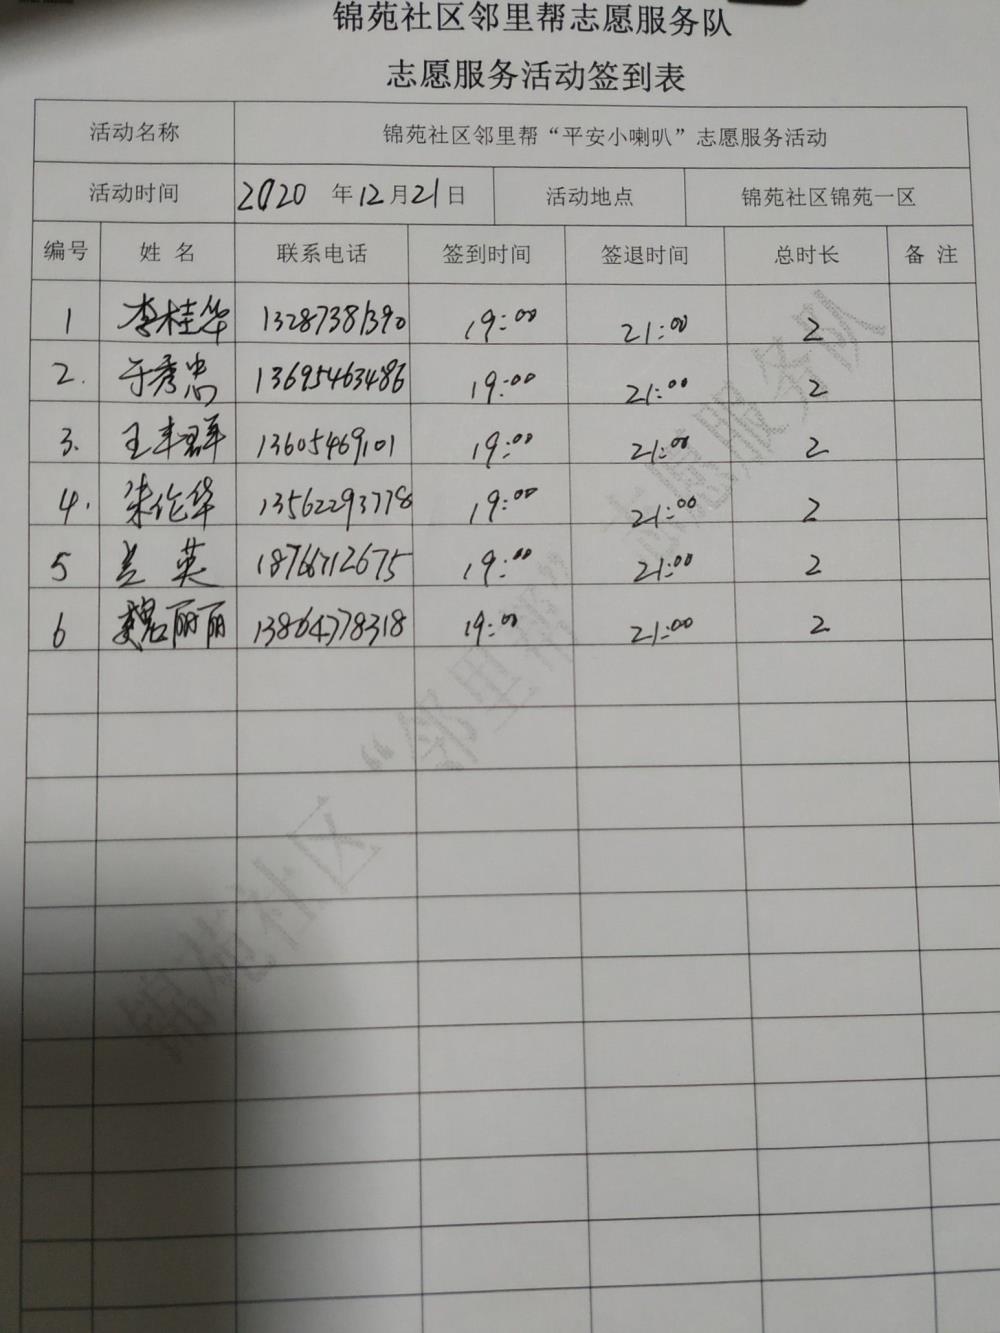 锦苑社区邻里帮志愿服务队
志愿服务活动签到表
活动名称 锦苑社区邻里帮“平安小喇叭”志愿服务活动
活动时间 2020 年 12 月 21 日 活动地点 锦苑社区锦苑一区
编号 姓 名 联系电话 签到时间 签退时间 总时长 备 注
1 李桂华 13287381390 19:00 21:00 2
2. 于秀忠 13695463486 19:00 21:00 2
3. 王丰群 13605469101 19:00 21:00 2
4. 朱伦华 13562293778 19:00 21:00 2
5 兰英 18766712675 19:00 21:00 2
6 魏丽丽 13864778318 19:00 21:00 2
锦苑社区“邻里帮”志愿服务队